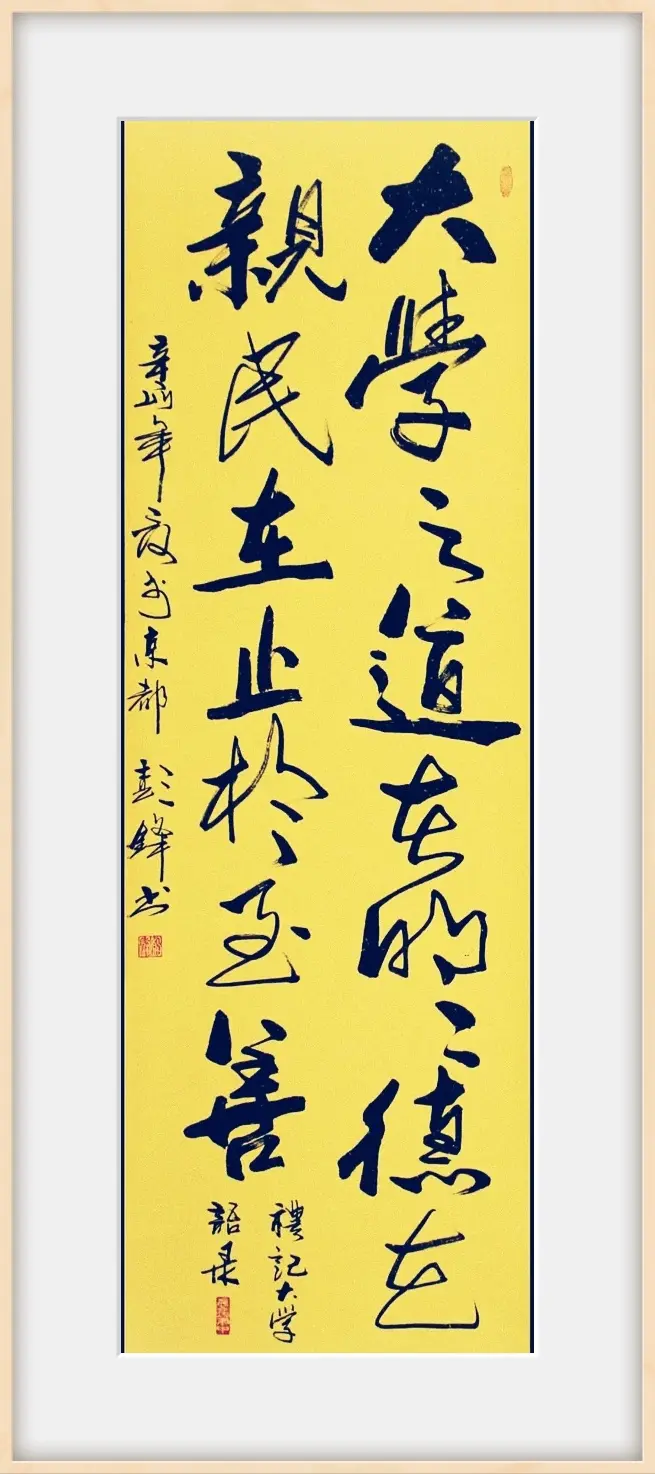 大學之道在明〻德在
親民在止於至善
禮記大学
語录
辛卯年夏都彭鋒书